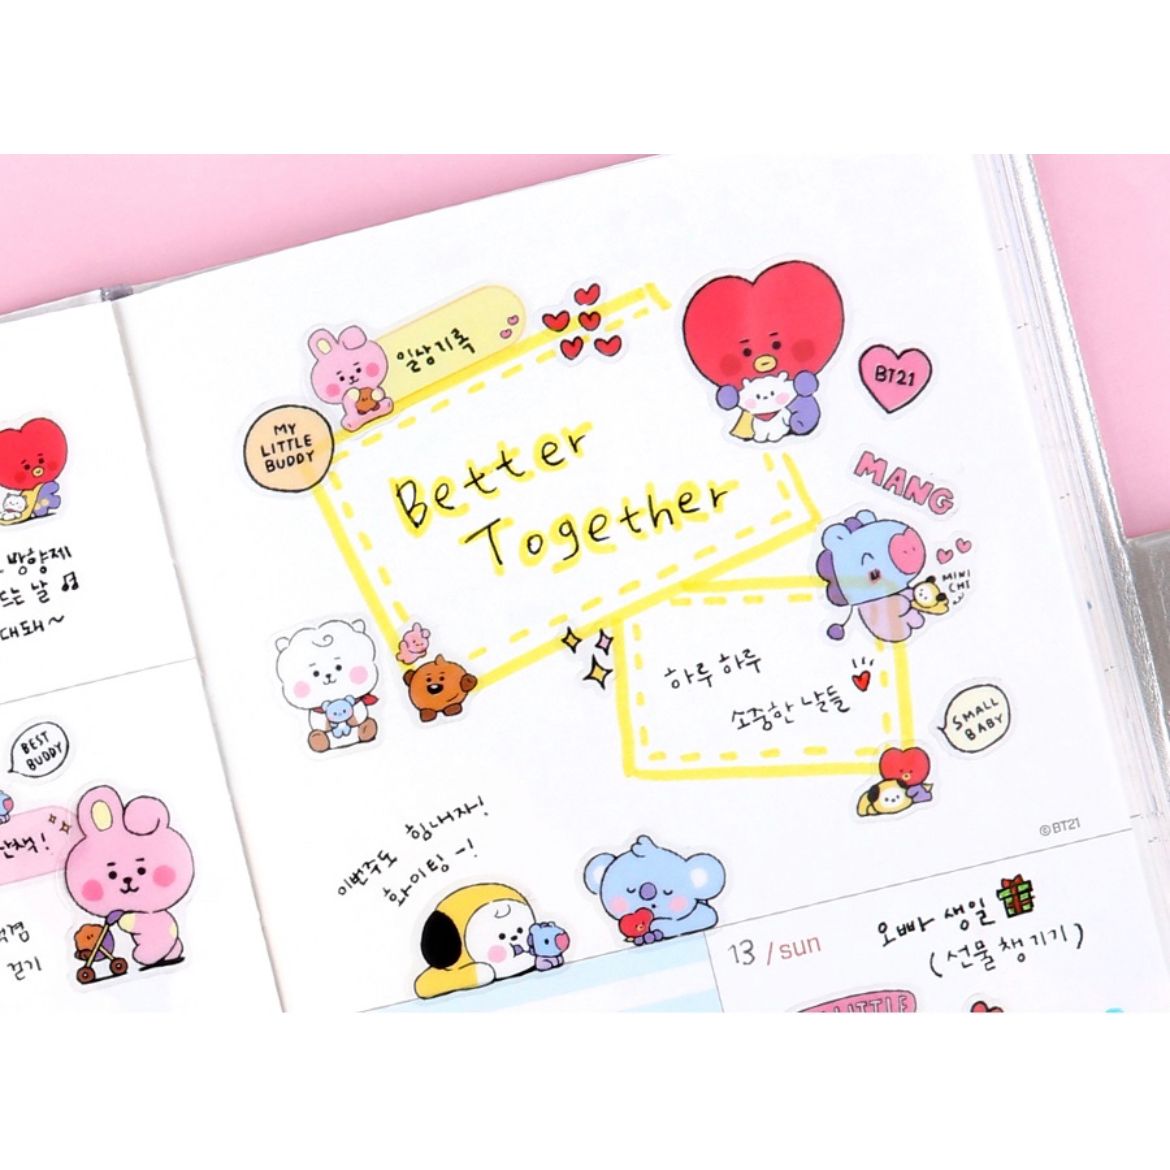 일상기록
MY
LITTLE
BUDDY
Better
Together
BT21
MANG
MINI
CHI
하루 하루
소중한 날들
SMALL
BABY
©BT21
이번주도 힘내자!
화이팅-!
방향제
는 날
대돼~
BEST
BUDDY
걷기
13 /sun
오빠 생일
(선물챙기기)
LITTLE